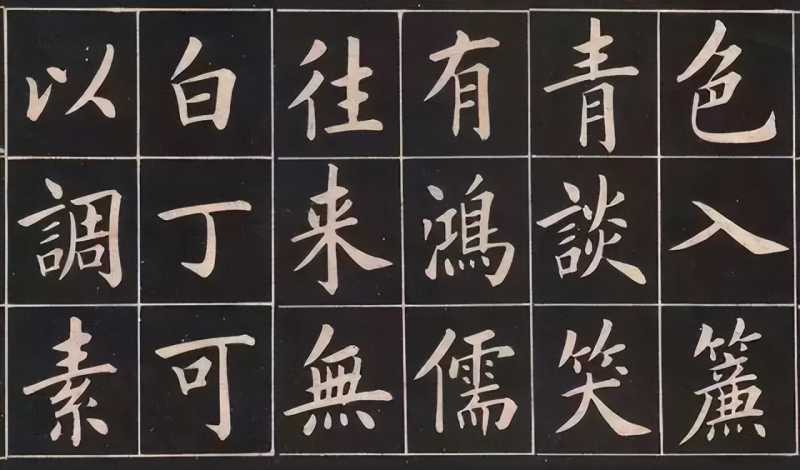 色入簾
青談笑
有鴻儒
往来無
白丁可
以調素